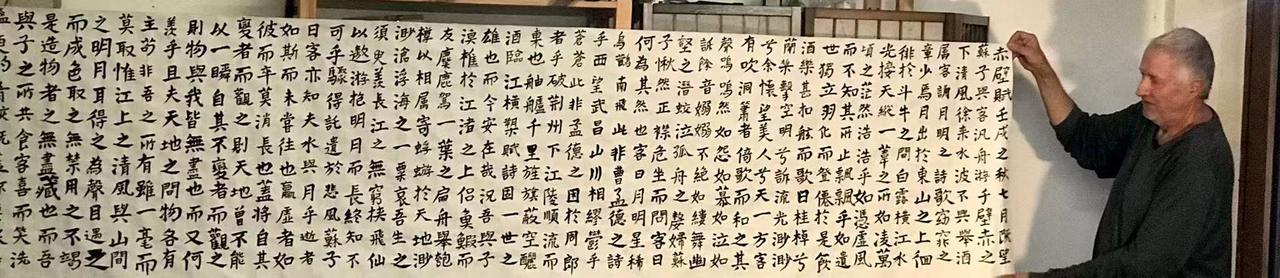 赤壁賦壬戌之秋七月既望
蘇子與客汎舟游于壁赤之
下清風徐來水波不興舉酒
屬客誦明月之詩歌窈窕之
章少焉月出於東山之上徊
徘於斗牛之間白露橫江水
光接天縱一葦之所如凌萬
頃之茫然浩浩乎如憑虛風
而不知其所止飄飄乎如遺
世獨立羽化而登僊於是飲
酒樂甚扣舷而歌曰桂棹兮
蘭槳擊空明兮訴流光渺
兮余懷望美人兮天一方客
有吹洞簫倚歌而和之其
聲嗚嗚然如怨如慕如泣如
訴餘音嫋嫋不絕如縷舞幽
壑之潛蛟泣孤舟之嫠婦蘇
子愀然正襟危坐而問客曰
何為其然也客曰月明星稀
烏鵲南飛此非曹孟德之詩
乎西望武昌山川相繆鬱乎
蒼蒼此非孟德之困於周郎
者乎破荊州下江陵順流而
東也舳艫千里旌旗蔽空釃
酒臨江橫槊賦詩固一世之
雄也而今安在哉況吾與子
漁樵於江渚之上侶魚蝦而
友麋鹿駕一葉之扁舟舉匏
樽以相屬寄蜉蝣於天地渺
渺滄浮海之一粟哀吾生之
須臾羨長江之無窮挾飛仙
以遨遊抱明月而長終知不
可乎驟得託遺於悲風蘇子
曰客亦知夫水與月乎逝者
如斯而未嘗往也贏虛者如
彼而卒莫消長也蓋將自其
變者而觀之則天地曾不能
以一瞬自其不變者而觀之
則物與我皆無盡也而又何
羨乎且夫天地之間物各有
主苟非吾之所有雖一毫而
莫取惟江上之清風與山間
之明月耳得之為聲目遇之
而成色取之無禁用之不竭
是造物者之無盡藏也而吾
與子之所共食客喜而笑洗